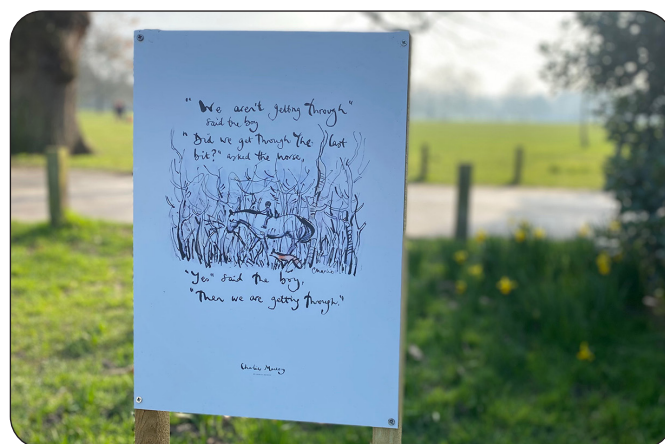 "We aren't getting through"
said the boy
"Did we get through the last
bit?" asked the horse,
Charlie
"Yes" said the boy,
"Then we are getting through."
Charlie Mackesy